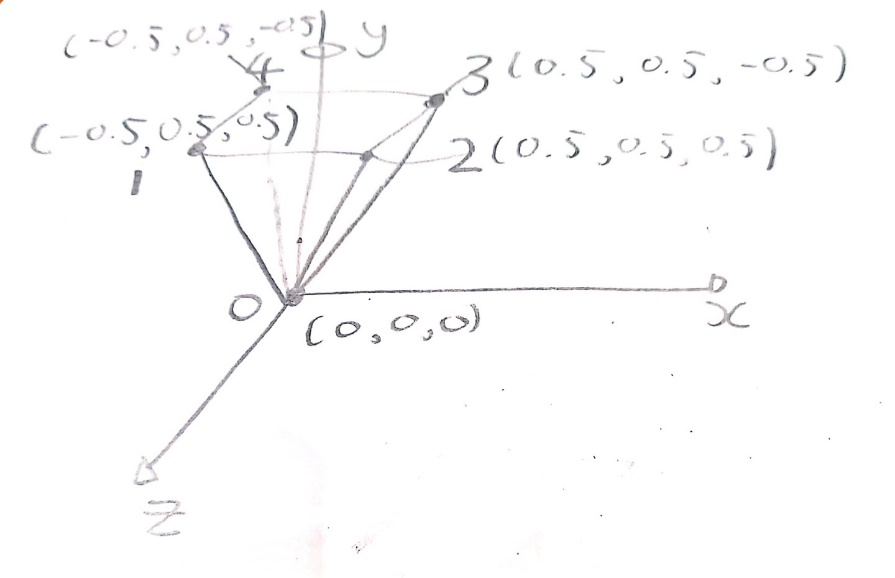 (-0.5, 0.5, -0.5) y
4
3 (0.5, 0.5, -0.5)
(-0.5, 0.5, 0.5)
1
2 (0.5, 0.5, 0.5)
0
(0, 0, 0)
x
z